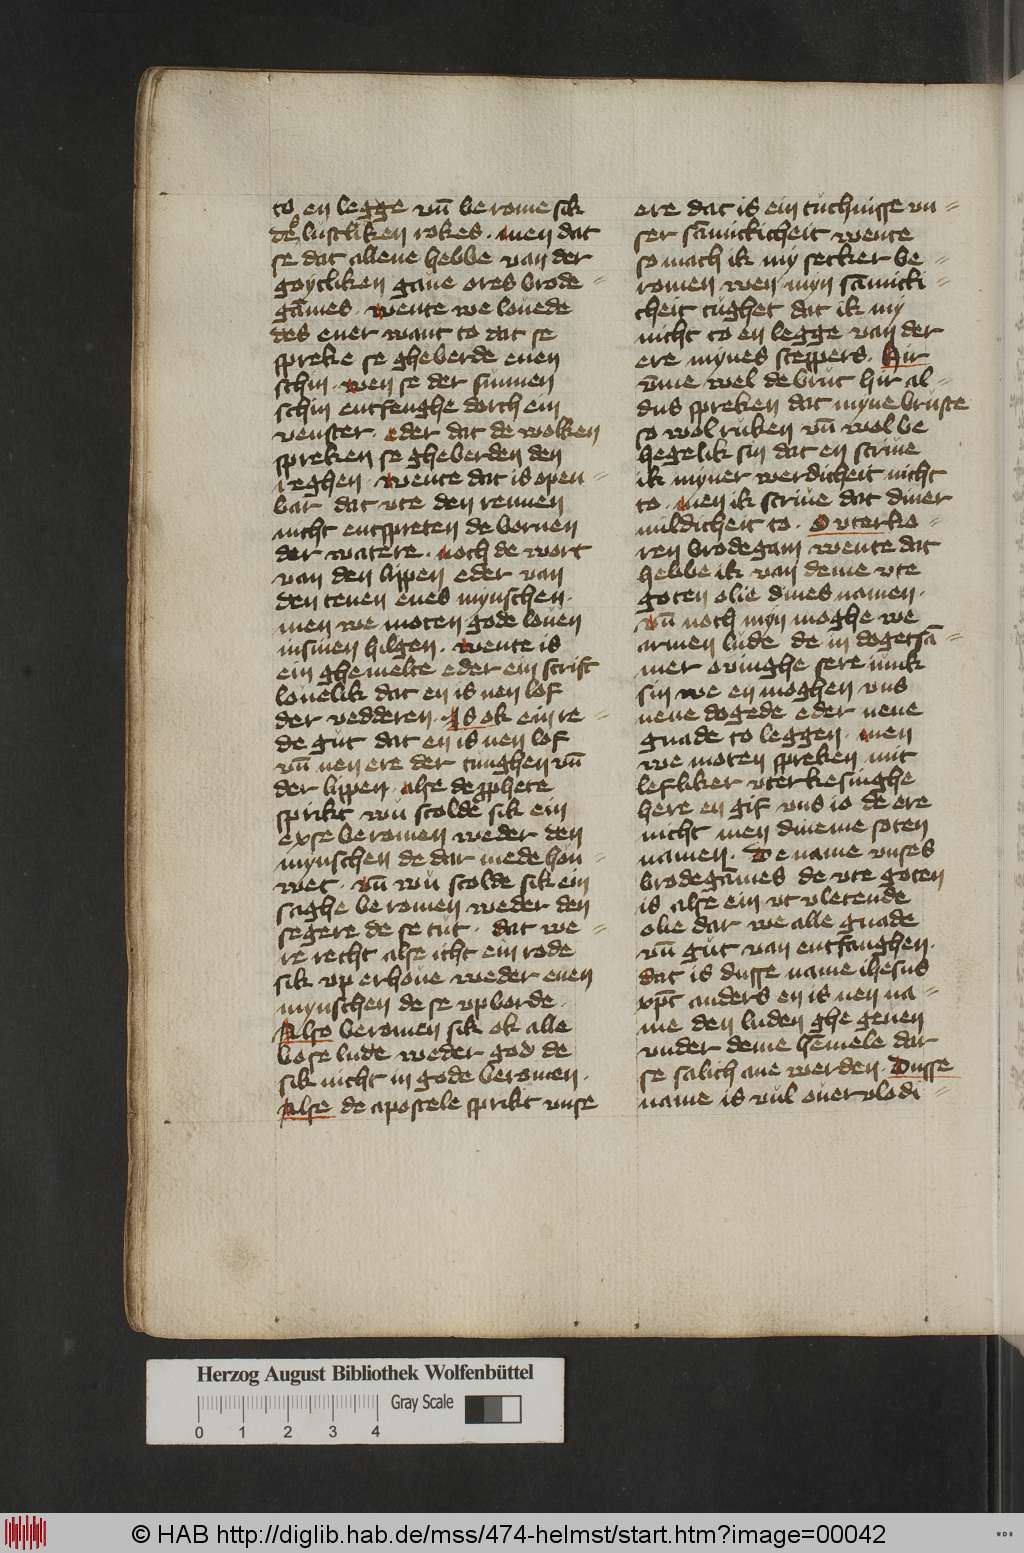 to en legge vn̄ berome sik
des lustliken rokes · men dat
se dat allene hebbe van der
goytliken gaue ores brode=
gāmes · wente we louede
des ener want to dat se
spreke se gheberde enen
schin · wen se der sunnen
schin entfenghe dorch ein
venster · eder dat de wolken
spreken se gheberden den
reghen · wente dat is open=
bar dat vte den rennen
nicht entspreten de bornen
der watere · noch de wort
van den lippen eder van
den tenen enes mynschen ·
men we moten gode louen
in sinen hilgen · wente is
ein ghemelte eder ein scrift
louelik dat en is nen lof
der vedderen · Is ok ein re=
de gůt dat en is nen lof
vn̄ nen ere der tunghen vn̄
der lippen · alse de ꝓphete
sprikt wů scolde sik ein
exse beromen weder den
mynschen de dar mede hou=
wet · vn̄ wů scolde sik ein
saghe beromen weder den
segere de se tut · dat we=
re recht alse icht ein rode
sik vp erhoue weder enen
mynschen de se vpborde ·
Also beromen sik ok alle
bose lude weder god de
sik nicht in gode beromen ·
Alse de apostele sprikt vnse
ere dat is ein tuchnisse vn=
ser sāmitticheit wente
so mach ik my secker be=
romen wen myn sāmitti=
cheit tughet dat ik my
nicht to en legge van der
ere mynes sceppers · Hir
vm̄e wel de brut hir al=
dus spreken dat myne bruste
so wol ruken vn̄ wol be
hegelik sin dat en scriue
ik myner werdicheit nicht
to · men ik scriue dat diner
mildicheit to · O vterko=
ren brodegam wente dat
hebbe ik van deme vte
goten olie dines namen ·
vn̄ noch myn moghe we
armen lude de in dogetsā=
mer ouinghe sere iunk
sin we en moghen vns
nene dogede eder nene
gnade to leggen · men
we moten spreken mit
lefliker vterkesinghe
here en gif vns io de ere
nicht men dineme soten
namen · De name vnses
brodegāmes de vte goten
is alse ein vt vletende
olie dar we alle gnade
vn̄ gůt van entfanghen ·
dat is dusse name ihesus
xp̄t anders en is nen na=
me den luden ghe geuen
vnder deme hēmele dar
se salich ane werden · Dusse
name is vůl ouervlodi=
Herzog August Bibliothek Wolfenbüttel
Gray Scale
0 1 2 3 4
© HAB http://diglib.hab.de/mss/474-helmst/start.htm?image=00042